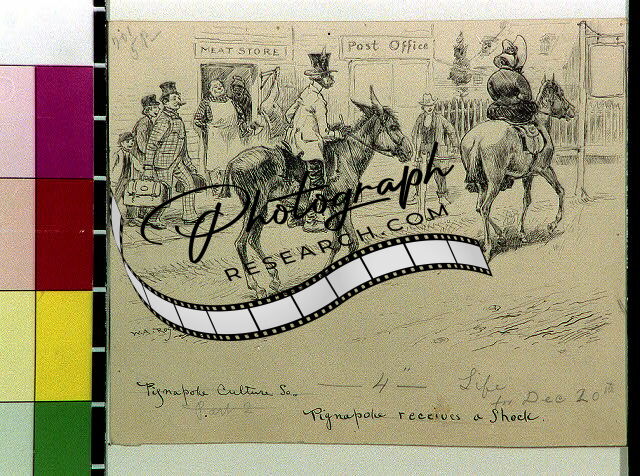 MEAT STORE
Post Office
Photograph
RESEARCH.COM
Pignapoke Culture So. — 4"— Life
Part 2 for Dec 20th
Pignapoke receives a Shock.